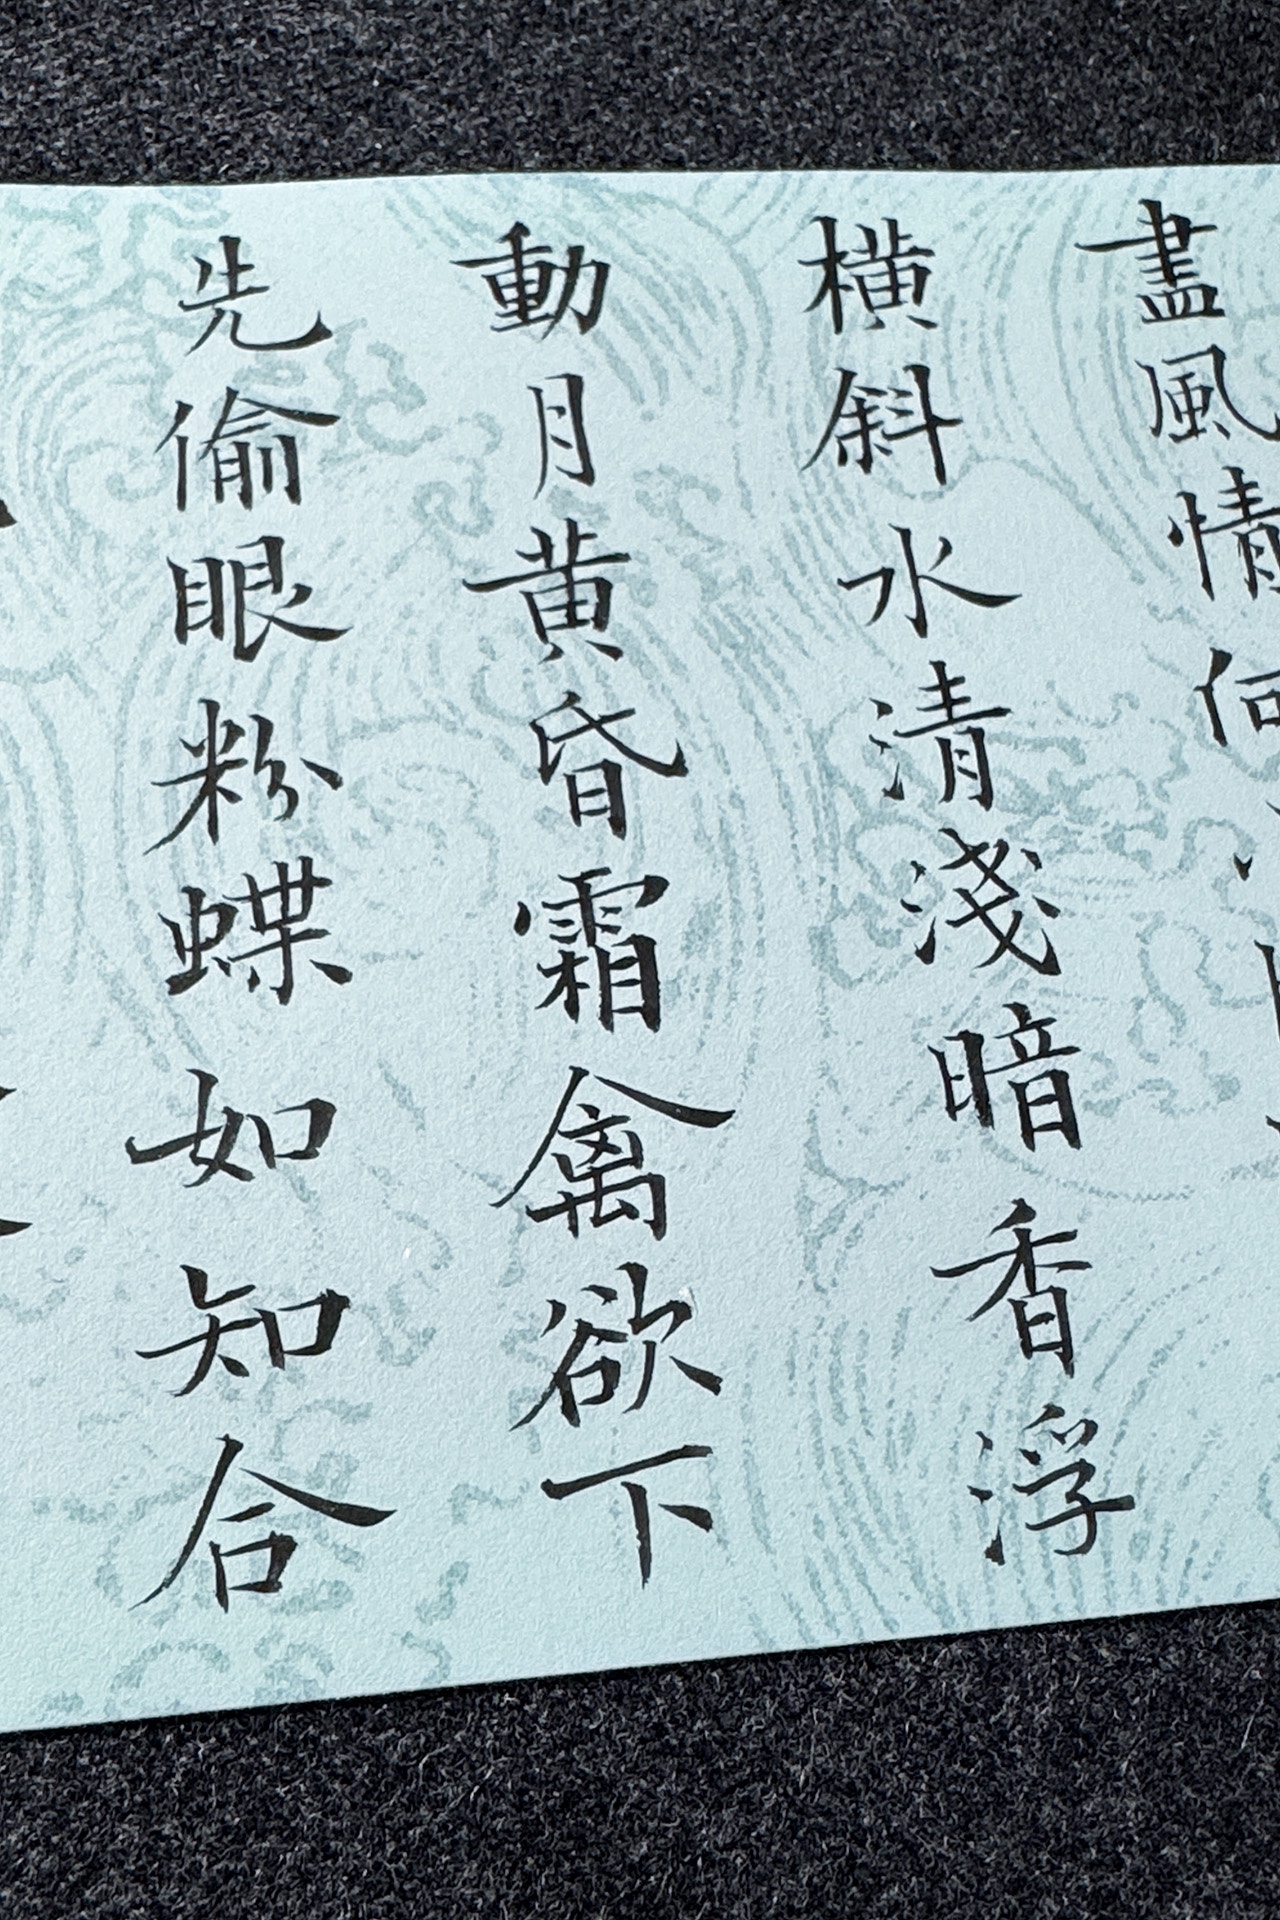 盡風情向
橫斜水清淺暗香浮
動月黃昏霜禽欲下
先偷眼粉蝶如知合